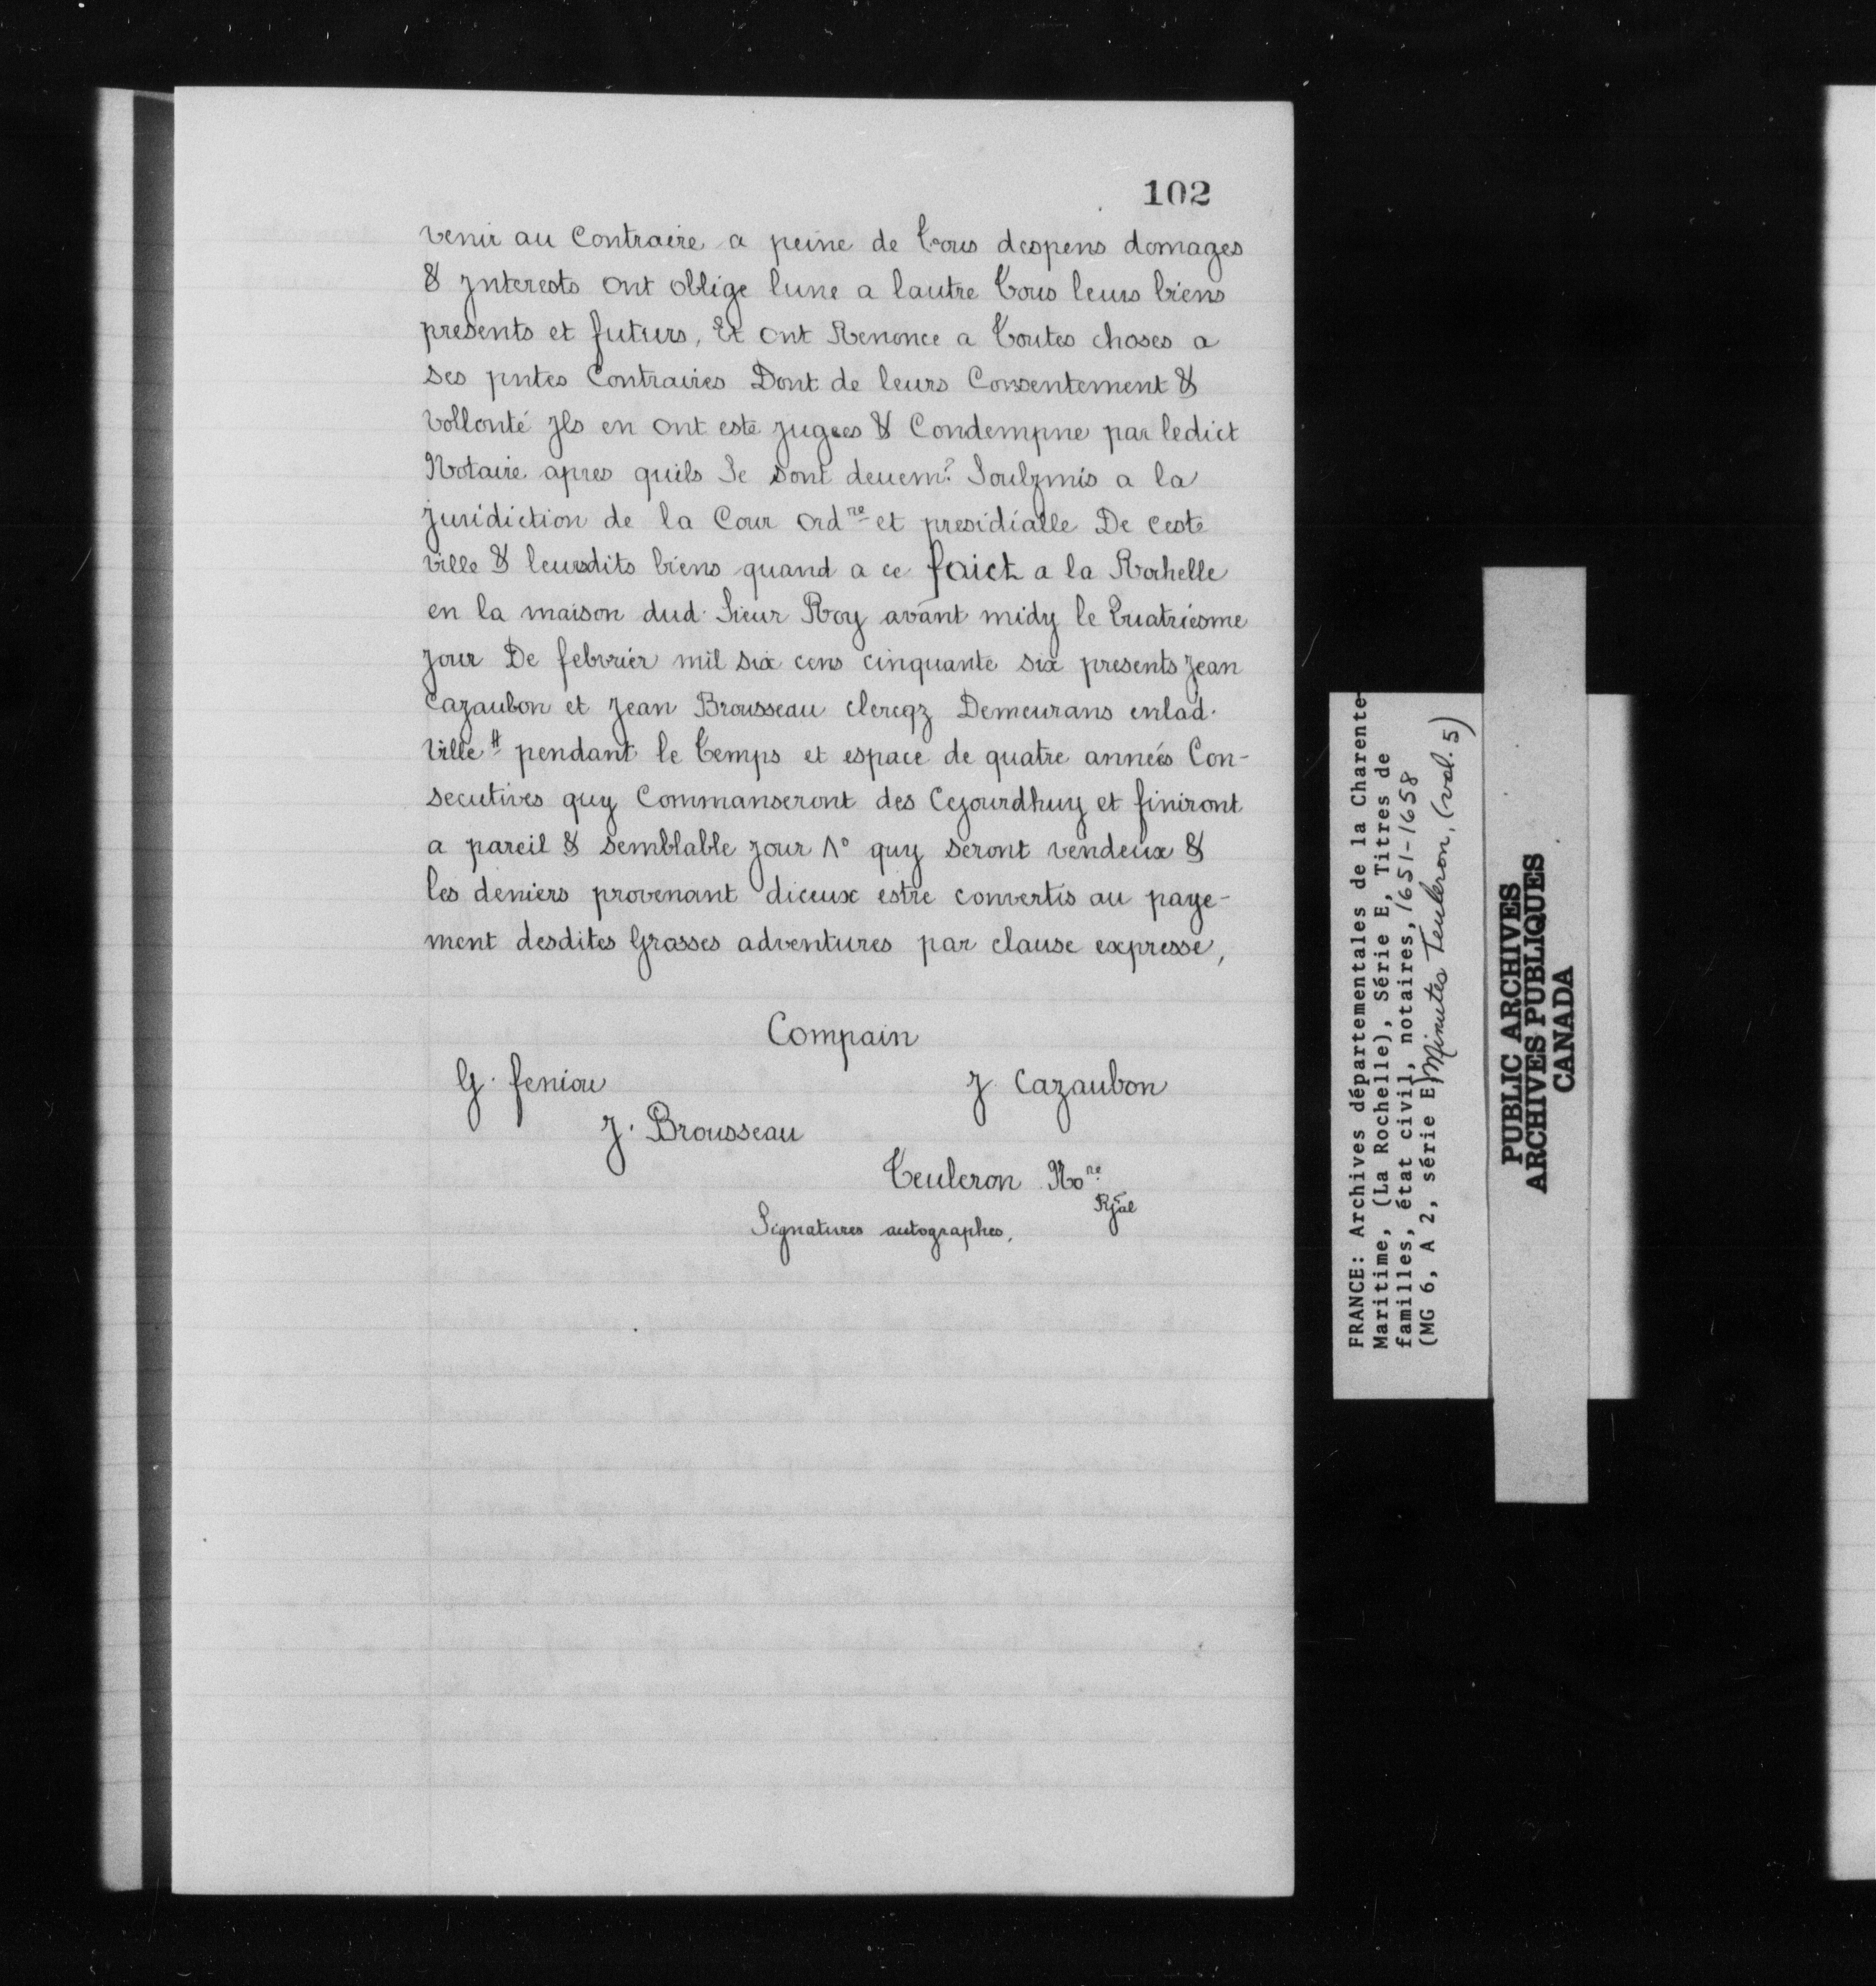 102
venir au Contraire a peine de tous despens domages
& jnterests ont oblige lune a lautre tous leurs biens
presents et futurs, Et ont Renonce a toutes choses a
ses pntes Contraires Dont de leurs Consentement &
vollonté jls en ont este jugees & Condempne par ledict
Notaire apres quils Se sont deuem? Soulzmis a la
juridiction de la Cour ordre et presidialle De ceste
ville & leursdits biens quand a ce faict a la Rochelle
en la maison dud. Sieur Roy avant midy le quatriesme
jour De febvrier mil six cens cinquante six presents jean
Cazaubon et jean Brousseau clercqz Demeurans enlad.
ville # pendant le temps et espace de quatre années Con-
secutives quy Commanseront des Cejourdhuy et finiront
a pareil & semblable jour Λ° quy seront vendeux &
les deniers provenant diceux estre convertis au paye-
ment desdites Grosses adventures par clause expresse,
Compain
G. feniou
J. Cazaubon
J. Brousseau
Teuleron No.re
Rjal
Signatures autographes.
FRANCE: Archives départementales de la Charente-
Maritime, (La Rochelle), Série E, Titres de
familles, état civil, notaires, 1651-1658
(MG 6, A 2, série E) Minutes Teuleron, (vol. 5)
PUBLIC ARCHIVES
ARCHIVES PUBLIQUES
CANADA